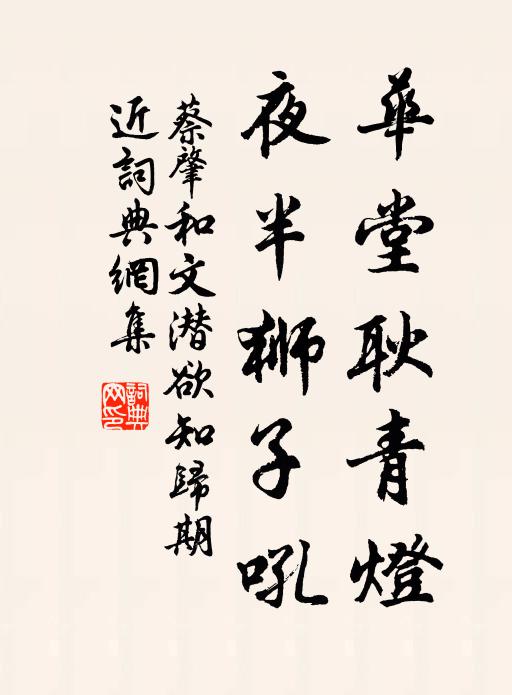 華堂耿青燈
夜半獅子吼
蔡肇和文潜欲知歸期
近詞典網集
詞典
网印